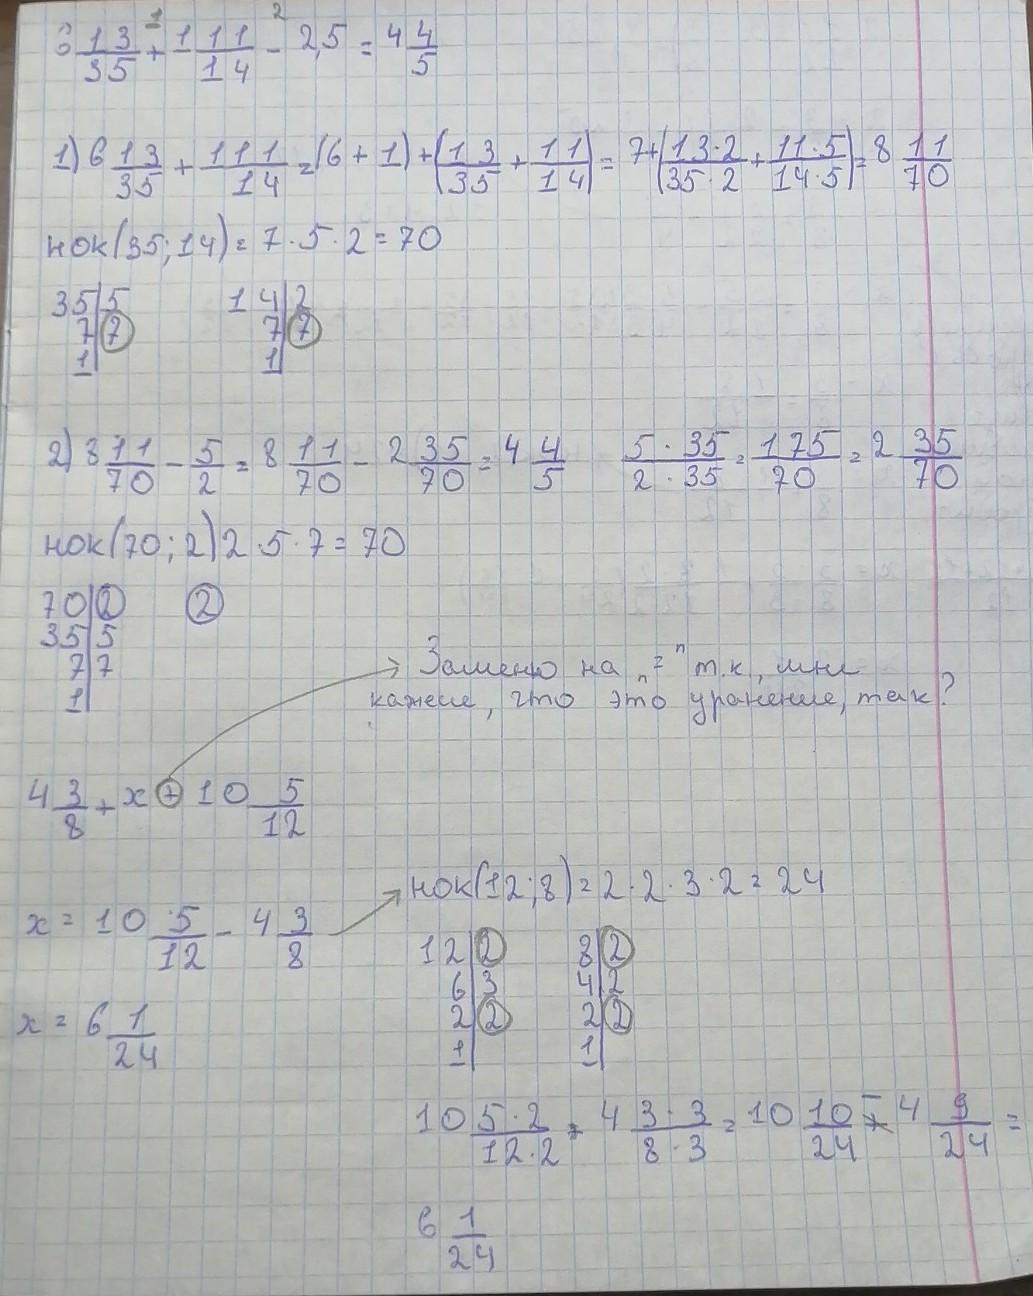 1 2
6 13/35 + 1 11/14 - 2,5 = 4 4/5
1) 6 13/35 + 1 11/14 = (6 + 1) + (13/35 + 11/14) = 7 + (13·2/35·2 + 11·5/14·5) = 8 11/70
нок(35; 14) = 7·5·2 = 70
35|5 14|2
7|7 7|7
1| 1|
2) 8 11/70 - 5/2 = 8 11/70 - 2 35/70 = 4 4/5 5·35/2·35 = 175/70 = 2 35/70
нок(70; 2) 2·5·7 = 70
70|2 2
35|5
7|7
1|
Заменю на „=" т.к, мне
кажеце, что это уранение, так?
4 3/8 + x + 10 5/12
нок(12; 8) = 2·2·3·2 = 24
x = 10 5/12 - 4 3/8
12|2 8|2
6|3 4|2
2|2 2|2
1| 1|
x = 6 1/24
10 5·2/12·2 - 4 3·3/8·3 = 10 10/24 - 4 9/24 =
6 1/24